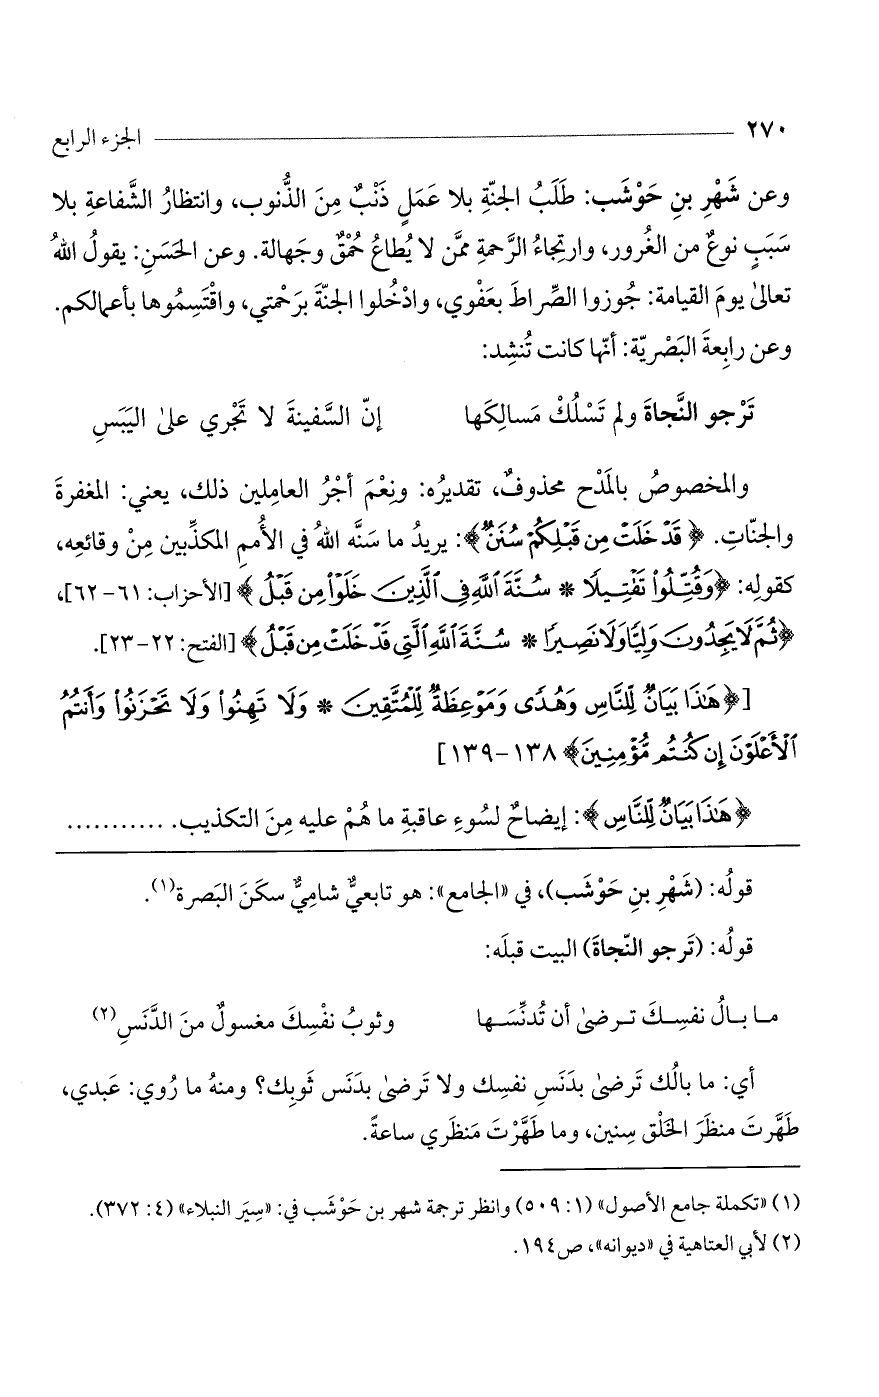 ٢٧٠ الجزء الرابع
وعن شَهْرِ بنِ حَوْشَب: طَلَبُ الجنّةِ بلا عَمَلٍ ذَنْبٌ مِنَ الذُّنوب، وانتظارُ الشَّفاعةِ بلا
سَبَبٍ نوعٌ من الغُرور، وارتِجاءُ الرَّحمةِ ممَّن لا يُطاعُ حُمْقٌ وجَهالة. وعن الحَسَنِ: يقولُ اللهُ
تعالىٰ يومَ القيامة: جُوزوا الصِّراطَ بعَفْوي، وادْخُلوا الجنّةَ برَحْمتي، واقْتَسِمُوها بأعمالكم.
وعن رابِعةَ البَصْريّة: أنّها كانت تُنشِد:
تَرْجو النَّجاةَ ولم تَسْلُكْ مَسالِكَها إنّ السَّفينةَ لا تَجْري علىٰ اليَبَسِ
والمخصوصُ بالمَدْح محذوفٌ، تقديرُه: ونِعْمَ أجْرُ العامِلين ذلك، يعني: المغفرةَ
والجنّاتِ. ﴿قَدْ خَلَتْ مِن قَبْلِكُمْ سُنَنٌ﴾: يريدُ ما سَنَّه اللهُ في الأُممِ المكذِّبين مِنْ وقائعِه،
كقولِه: ﴿وَقُتِّلُواْ تَفْتِيلًا * سُنَّةَ ٱللَّهِ فِي ٱلَّذِينَ خَلَوْاْ مِن قَبْلُ﴾ [الأحزاب: ٦١-٦٢]،
﴿ثُمَّ لَا يَجِدُونَ وَلِيًّا وَلَا نَصِيرًا * سُنَّةَ ٱللَّهِ ٱلَّتِي قَدْ خَلَتْ مِن قَبْلُ﴾ [الفتح: ٢٢-٢٣].
[﴿هَٰذَا بَيَانٌ لِّلنَّاسِ وَهُدًى وَمَوْعِظَةٌ لِّلْمُتَّقِينَ * وَلَا تَهِنُواْ وَلَا تَحْزَنُواْ وَأَنتُمُ
ٱلْأَعْلَوْنَ إِن كُنتُم مُّؤْمِنِينَ﴾ ١٣٨-١٣٩]
﴿هَٰذَا بَيَانٌ لِّلنَّاسِ﴾: إيضاحٌ لسُوءِ عاقبةِ ما هُمْ عليه مِنَ التكذيب. ...........
قولُه: (شَهْرِ بنِ حَوْشَب)، في «الجامع»: هو تابعيٌّ شاميٌّ سكَنَ البَصرة(١).
قولُه: (تَرجو النّجاةَ) البيت قبلَه:
ما بالُ نفسِكَ ترضىٰ أن تُدنِّسَها وثوبُ نفْسِكَ مغسولٌ منَ الدَّنَسِ(٢)
أي: ما بالُك تَرضىٰ بدَنَسِ نفسِك ولا تَرضىٰ بدَنَس ثَوبِك؟ ومنهُ ما رُوي: عَبدي،
طَهَّرتَ منظَرَ الخَلْق سِنين، وما طَهَّرْتَ مَنظَري ساعةً.
(١) «تكملة جامع الأصول» (١: ٥٠٩) وانظر ترجمة شهر بن حَوْشَب في: «سِيَر النبلاء» (٤: ٣٧٢).
(٢) لأبي العتاهية في «ديوانه»، ص١٩٤.